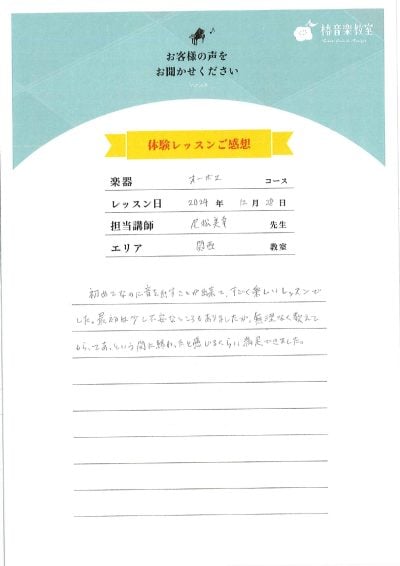 椿音楽教室
お客様の声を
お聞かせください
体験レッスンご感想
楽器 オーボエ コース
レッスン日 2024 年 12 月 28 日
担当講師 尾松美幸 先生
エリア 関西 教室
初めてなのに音を出すことが出来て、すごく楽しいレッスンで
した。最初は少し不安なところもありましたが、無理なく教えて
もらってあっという間に終わったと感じるくらい満足できました。